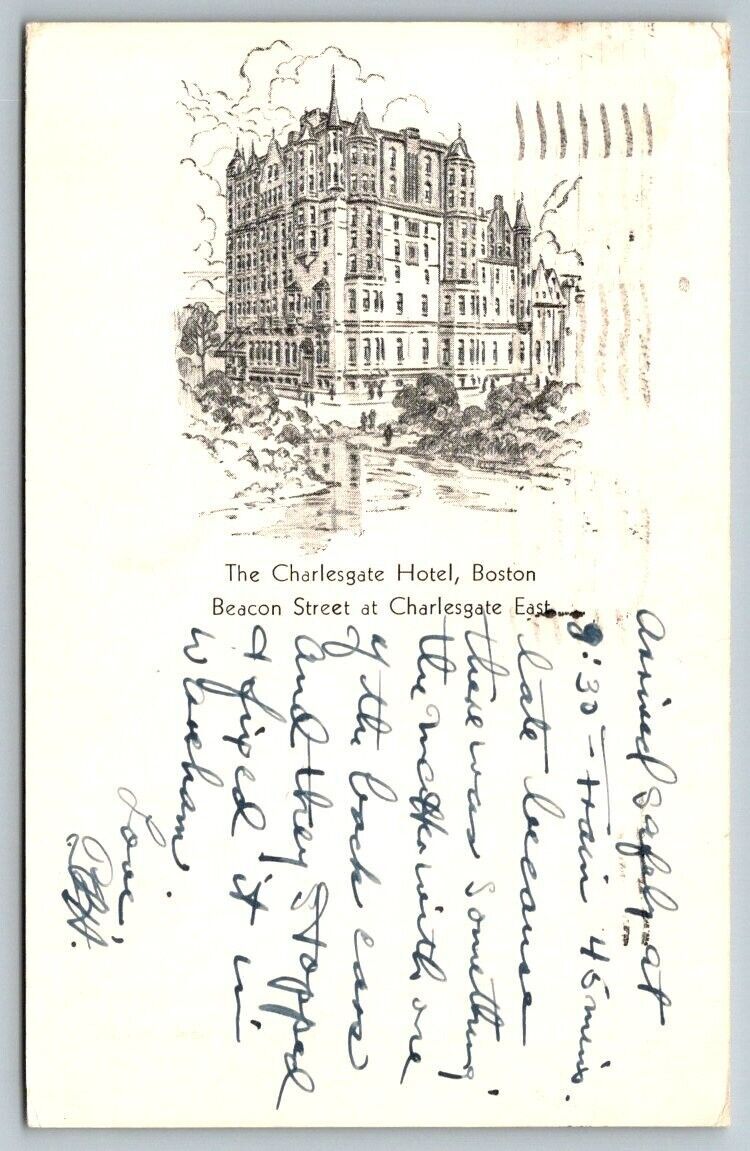 The Charlesgate Hotel, Boston
Beacon Street at Charlesgate East
Arrived safely at
9:30 - train 45 mins.
late because
there was something
the matter with one
of the back cars
and they stopped
& fixed it in
Wareham.
Love,